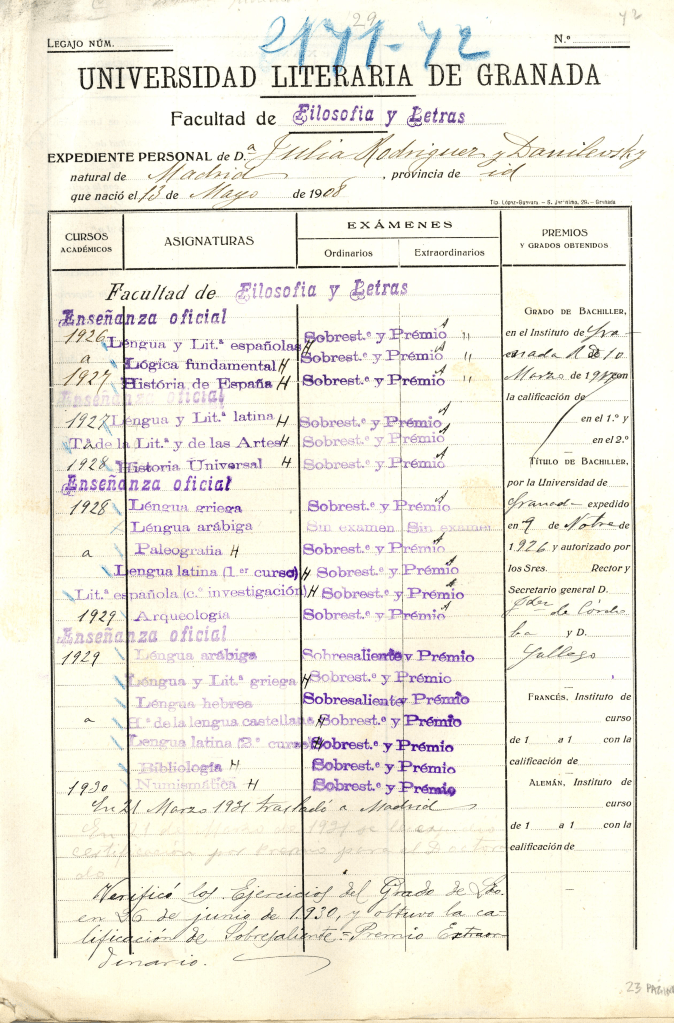 29
42
LEGAJO NÚM.
2171-42
N.º
UNIVERSIDAD LITERARIA DE GRANADA
Facultad de Filosofia y Letras
EXPEDIENTE PERSONAL de D.ª Julia Rodriguez y Danilevsky
natural de Madrid, provincia de id
que nació el 13 de Mayo de 1908
Tip. López-Guevara - S. Jerónimo, 29.- Granada
CURSOS ACADÉMICOS
ASIGNATURAS
EXÁMENES
Ordinarios
Extraordinarios
PREMIOS Y GRADOS OBTENIDOS
Facultad de Filosofia y Letras
Enseñanza oficial
1926 Léngua y Lit.ª españolas H Sobrest.e y Prémio "
a Lógica fundamental H Sobrest.e y Prémio "
1927 História de España H Sobrest.e y Prémio "
Enseñanza oficial
1927 Léngua y Lit.ª latina H Sobrest.e y Prémio
a T.ª de la Lit.ª y de las Artes H Sobrest.e y Prémio
1928 Historia Universal H Sobrest.e y Prémio
Enseñanza oficial
1928 Léngua griega Sobrest.e y Prémio
Léngua arábiga Sin exámen Sin exámen
a Paleografia H Sobrest.e y Prémio
Lengua latina (1.er curso) H Sobrest.e y Prémio
Lit.ª española (c.º investigación) H Sobrest.e y Prémio
1929 Arqueología Sobrest.e y Prémio
Enseñanza oficial
1929 Léngua arábiga Sobresaliente y Prémio
Léngua y Lit.ª griega H Sobrest.e y Prémio
Léngua hebrea Sobresaliente y Prémio
a H.ª de la lengua castellana H Sobrest.e y Prémio
Lengua latina (2.º curso) H Sobrest.e y Prémio
Bibliología H Sobrest.e y Prémio
1930 Numismática H Sobrest.e y Prémio
En 21 Marzo 1931 trasladó a Madrid
Verificó los Ejercicios del Grado de Ldo.
en 26 de junio de 1.930, y obtuvo la ca-
lificación de Sobresaliente = Premio Extraor-
dinario.
GRADO DE BACHILLER,
en el Instituto de Gra
nada 10
Marzo de 19 con
la calificación de
en el 1.º y
en el 2.º
TÍTULO DE BACHILLER,
por la Universidad de
Granada expedido
en 9 de Nobre de
1.926 y autorizado por
los Sres. Rector y
Secretario general D.
de Córdo
ba y D.
Gallego
FRANCÉS, Instituto de
curso
de 1 a 1 con la
calificación de
ALEMÁN, Instituto de
curso
de 1 a 1 con la
calificación de
23 PÁGINAS